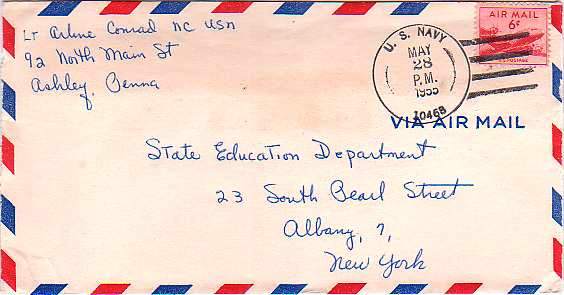 Lt Arline Conrad NC USN
92 North Main St
Ashley, Penna
U. S. NAVY
MAY
28
P.M.
1955
10468
AIR MAIL
6¢
U.S. POSTAGE
VIA AIR MAIL
State Education Department
23 South Pearl Street
Albany, 7,
New York